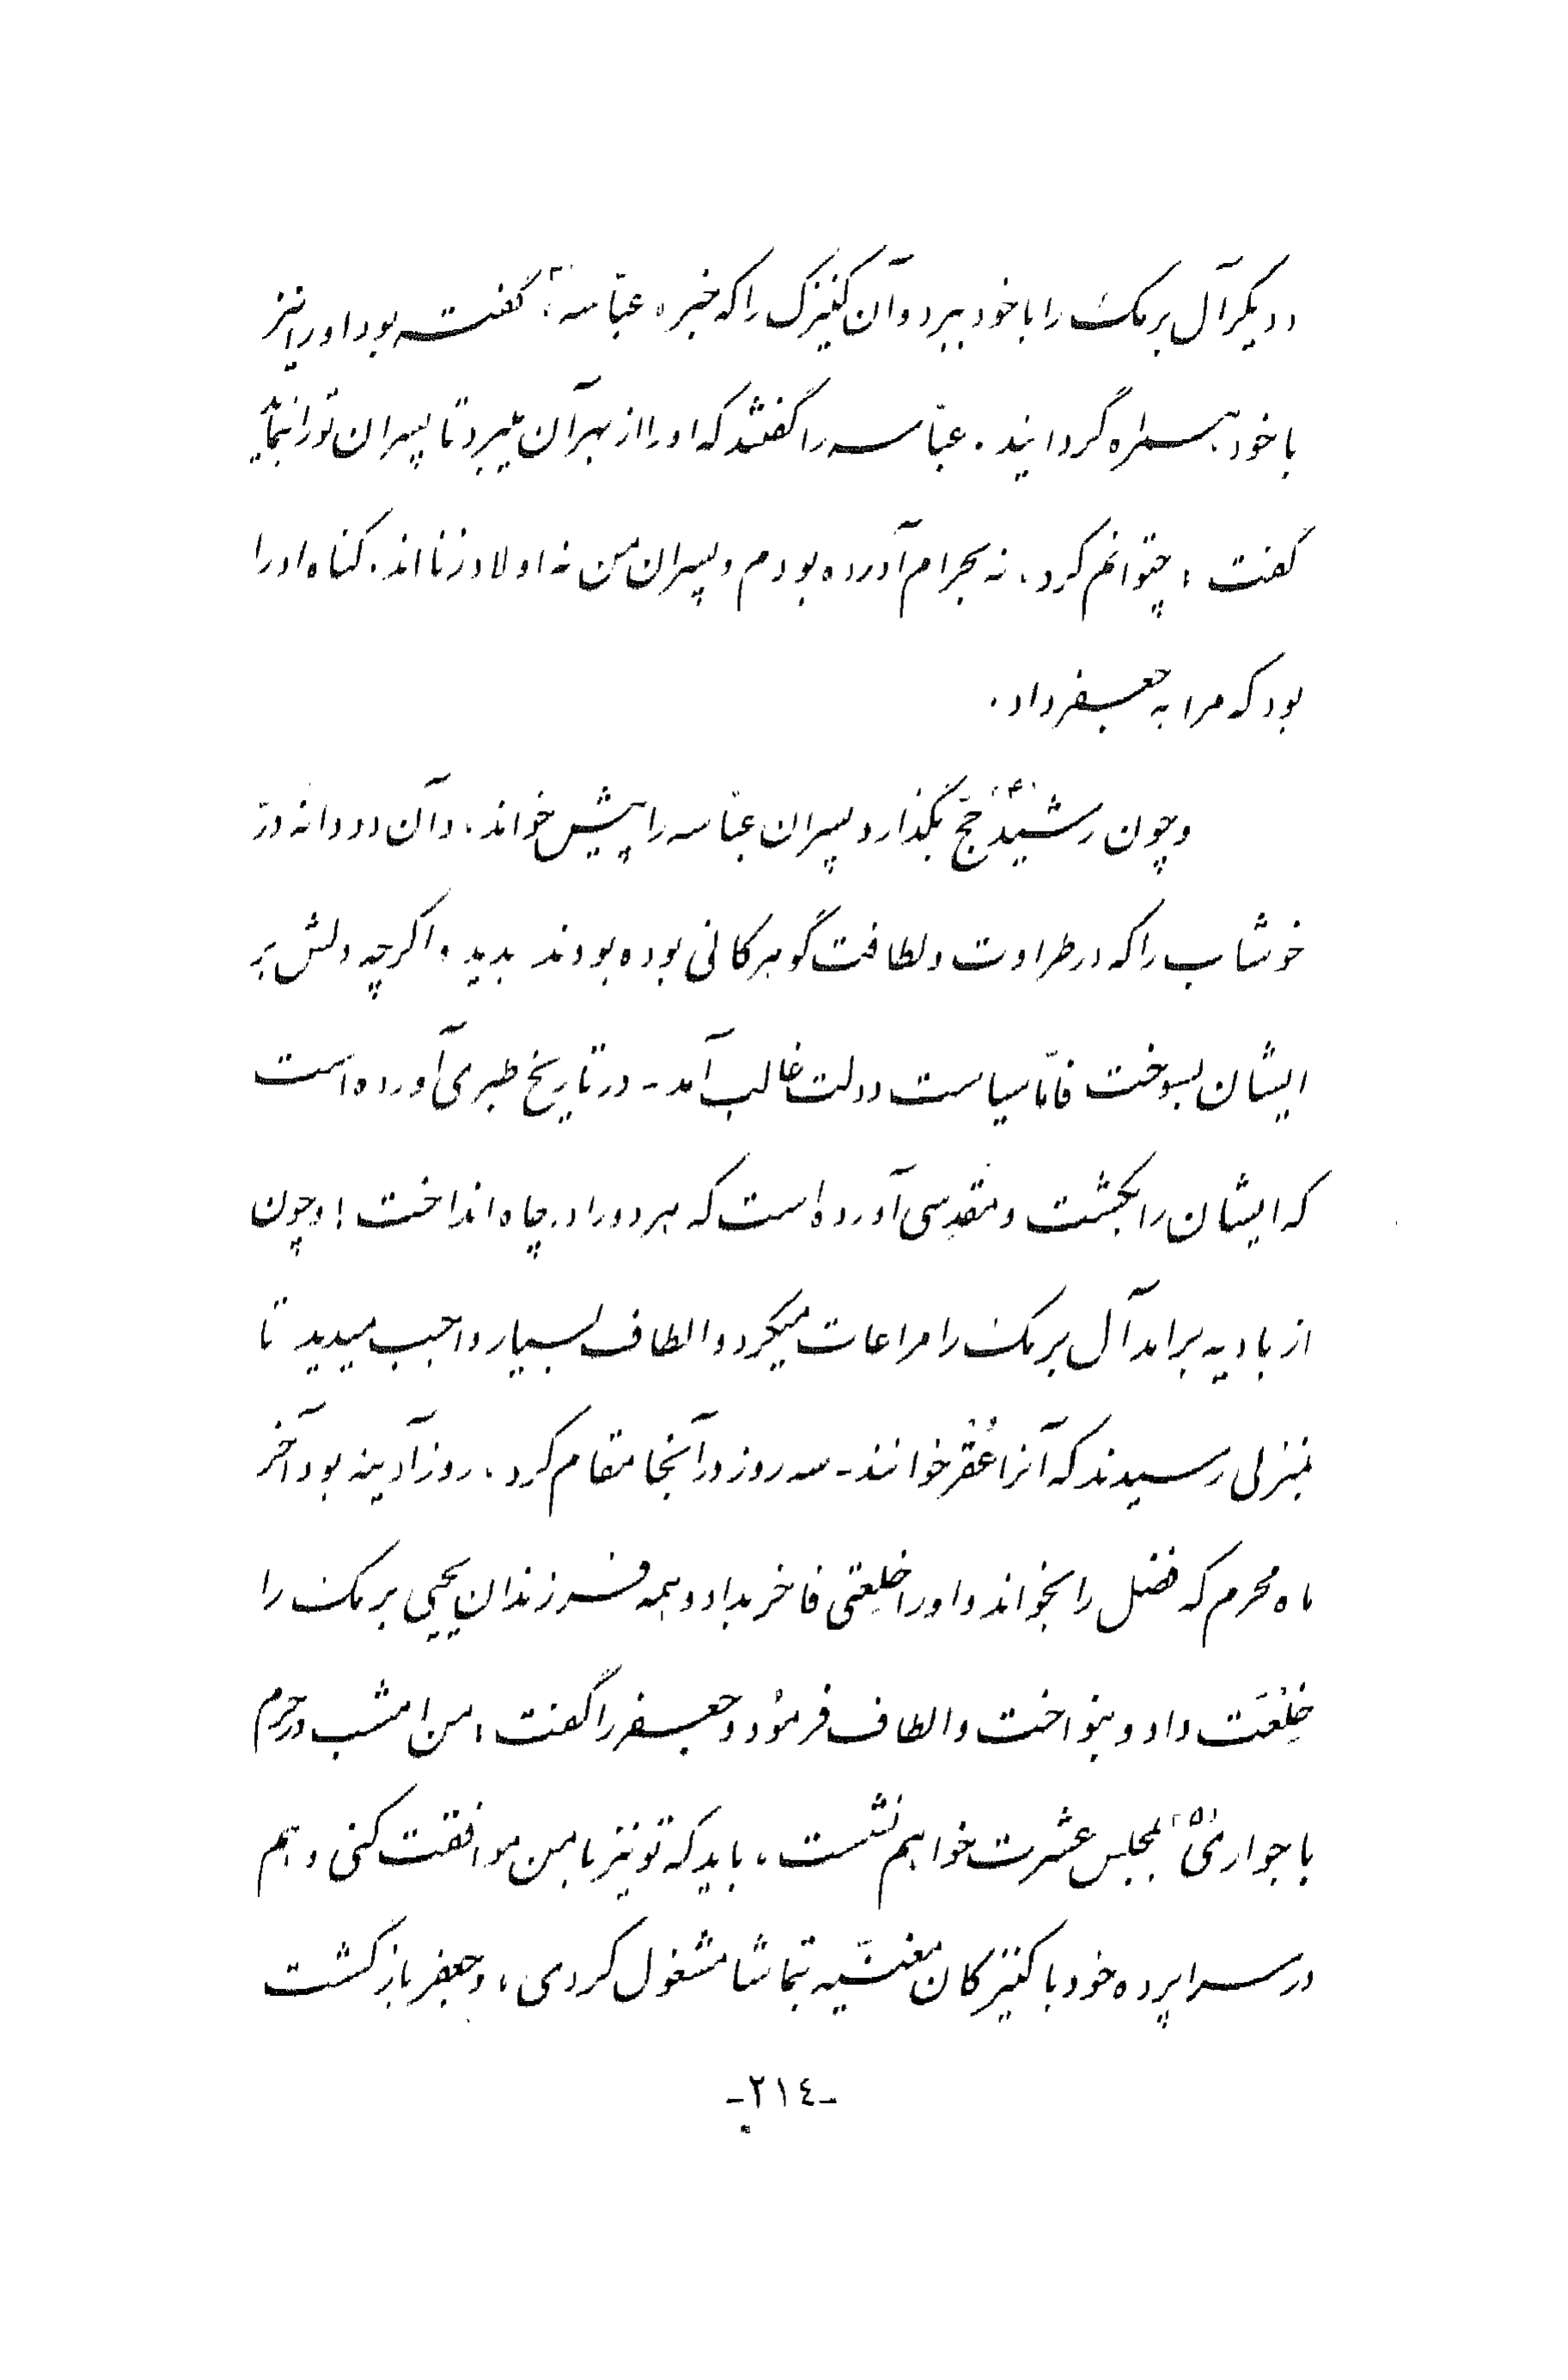 ودیگر آل برمک را با خود ببرد و آن کنیزک را که خبر عبّاسه گفته بود او را نیز
با خود همراه گردانید. عبّاسه را گفتند که او را از بهر آن میبرد تا پسران تو را بنماید
گفت: چتوانم کرد، نه بحرام آورده بودم و پسران من نه اولاد زنااند. گناه او را
بود که مرا به جعفر داد.
و چون رشید (۴) حجّ بگذارد پسران عبّاسه را پیش خواند، و آن دو دانه درّ
خوشاب را که در طراوت و لطافت گوهر کانی بوده بودند بدید و اگرچه دلش بر
ایشان بسوخت فامّا سیاست دولت غالب آمد - در تاریخ طبری آورده است
که ایشان را بکشت و مقدسی آورده است که هر دو را در چاه انداخت؛ و چون
از بادیه برامد آل برمک را مراعات میکرد و الطاف بسیار واجب میدید تا
بمنزلی رسیدند که آنرا عُمْر خوانند - سه روز در آنجا مقام کرد، روز آدینه بود آخر
ماه محرم که فضل را بخواند و او را خِلعتی فاخر بداد و همه فرزندان یحیی برمک را
خِلْعَت داد و بنواخت و الطاف فرمُود و جعفر را گفت: من امشب در حرم
با جواری (۵) بمجلس عشرت خواهم نشست، باید که تو نیز با من موافقت کنی و هم
در سراپرده خود با کنیزکان مغنّیه بتماشا مشغول گردی، و جعفر بازگشت
-٢١٤-